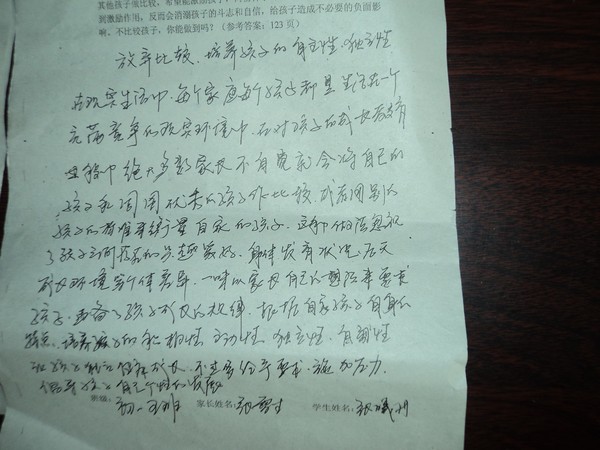 其他孩子做比较，希望能激励孩子
到激励作用，反而会消磨孩子的斗志和自信，给孩子造成不必要的负面影
响。不比较孩子，你能做到吗？（参考答案：123 页）
放弃比较、培养孩子的自主性、独立性
在现实生活中，每个家庭每个孩子都是生活在一个
充满竞争的现实环境中，在对孩子的成长教育
过程中绝大多数家长不自觉就会将自己的
孩子和周围优秀的孩子作比较，或者用别人
孩子的标准来衡量自家的孩子。这种做法忽视
了孩子之间的兴趣家好、身体发育状况、后天
成长环境等个体差异，一味以家长自己的想法来要求
孩子，违备了孩子成长的规律，根据自家孩子自身的
特点，培养孩子的积极性、主动性、独立性、自制性
让孩子健康成长，不过多给予要求、施加压力，
倡导孩子自己个性的发展
班级：初一 班 家长姓名： 学生姓名：